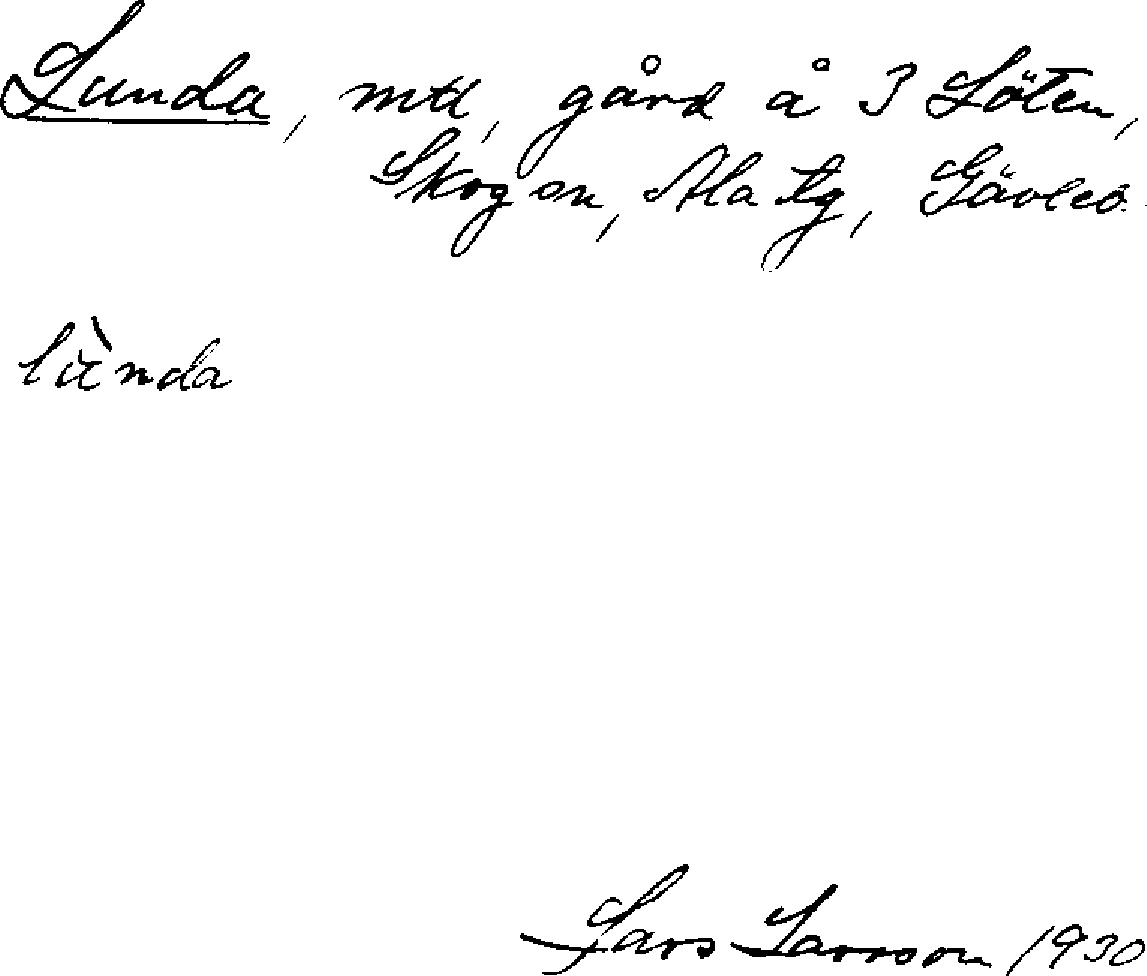 Lunda, mtl, gård å 3 Löten,
Skog sn, Ala tg, Gävleb.
lùnda
Lars Larsson 1930